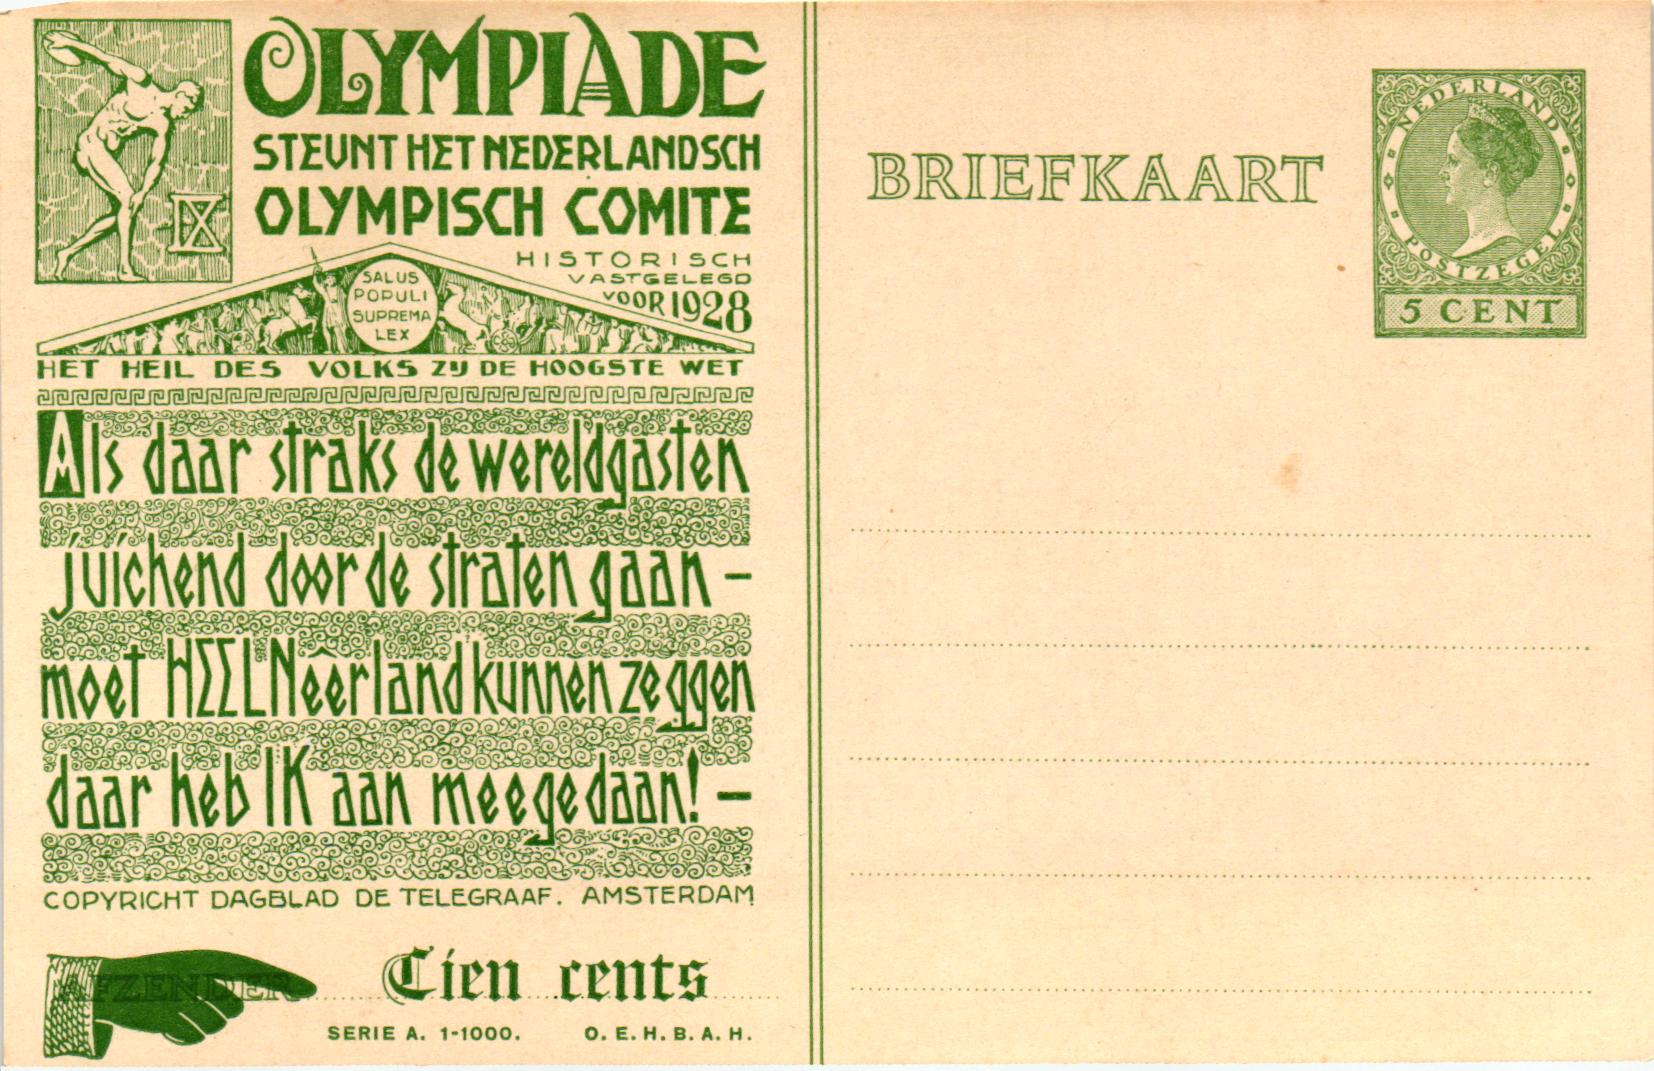 OLYMPIADE
STEUNT HET NEDERLANDSCH
OLYMPISCH COMITE
IX
HISTORISCH
VASTGELEGD
VOOR 1928
SALUS
POPULI
SUPREMA
LEX
HET HEIL DES VOLKS ZIJ DE HOOGSTE WET
Als daar straks de wereldgasten
juichend door de straten gaan –
moet HEEL Neêrland kunnen zeggen
daar heb IK aan meegedaan! –
COPYRICHT DAGBLAD DE TELEGRAAF. AMSTERDAM
AFZENDER
Tien cents
SERIE A. 1-1000. O. E. H. B. A. H.
BRIEFKAART
NEDERLAND
POSTZEGEL
5 CENT